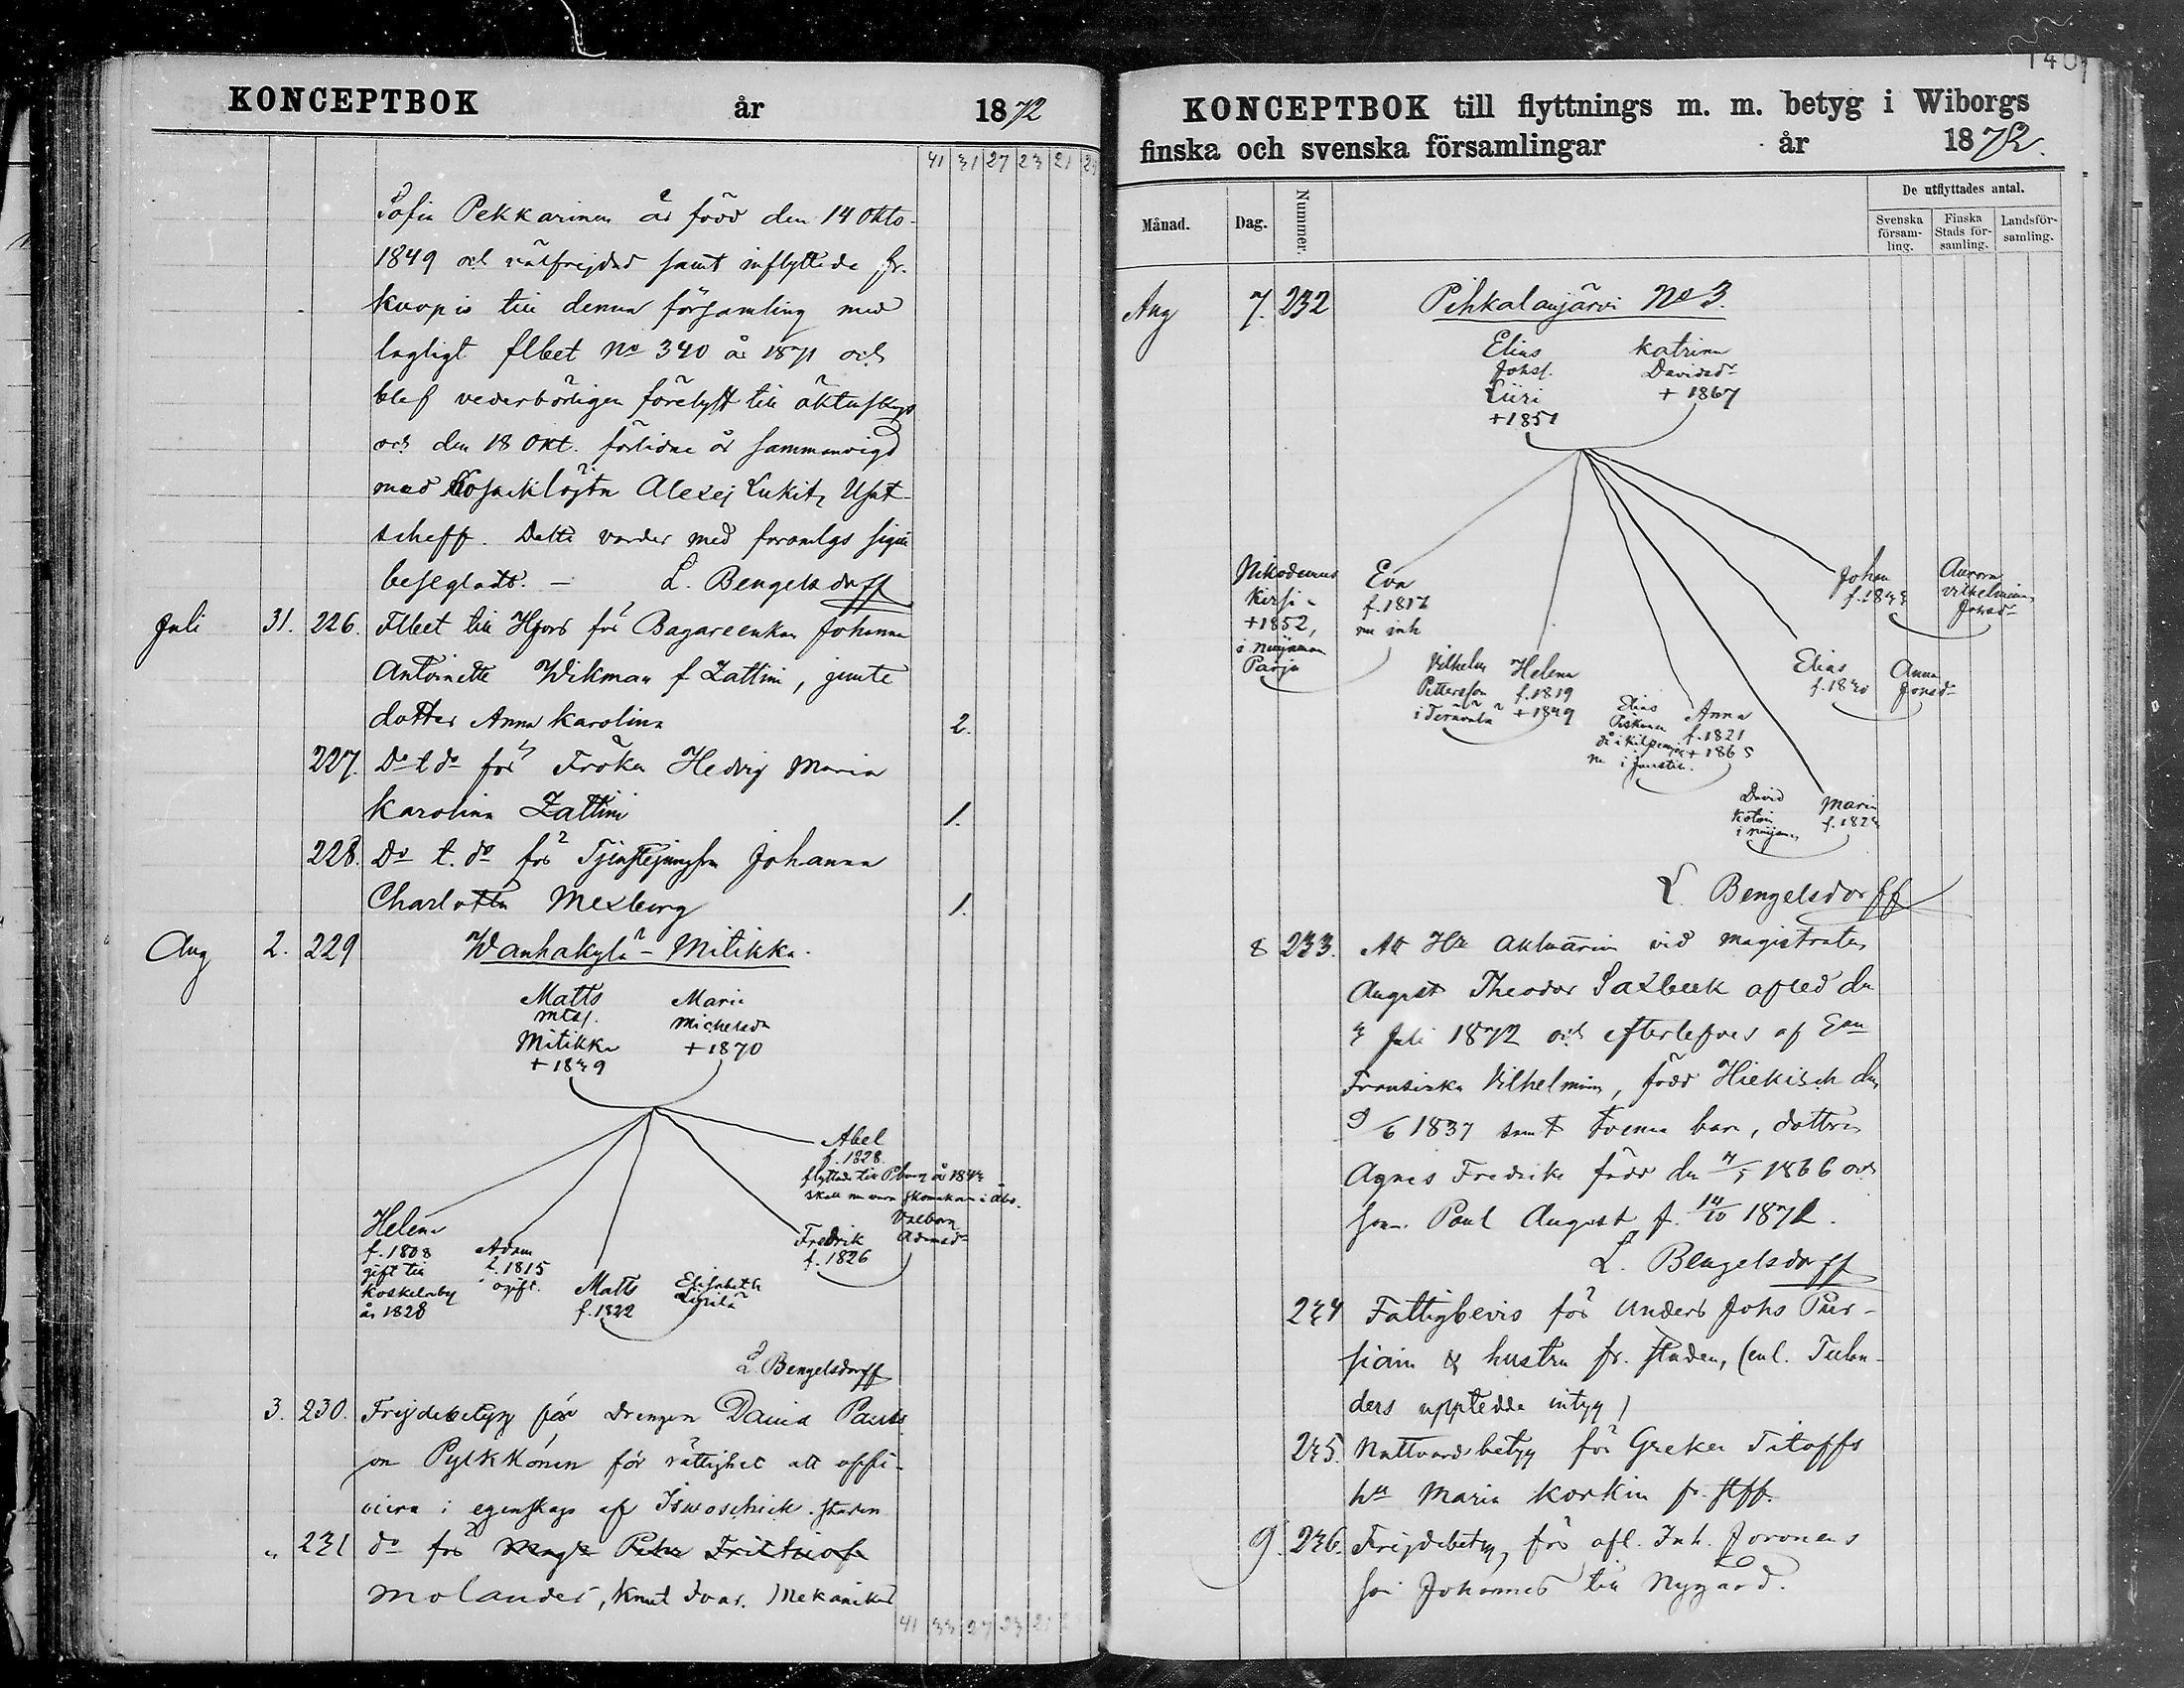 KONCEPTBOK år 1872
41 31 27 23 21
Sofia Pekkarinen är född den 14 Okto-
1849 och välfrejdad samt inflyttade fr.
Kuopio till denna församling med
lagligt flbet No 340 år 1871 och
blef vederbörligen förelyst till äktenskap
och den 18 Okt. förlidne år sammanvigd
med Kosacklöjtn Alexej Lukitz Usat-
scheff. Detta varder med församlgs sigill
besegladt. — L. Bengelsdorff
Juli 31. 226. Flbet till Hfors för Bagareenkan Johanna
Antoinette Wikman f Zattini, jemte
dotter Anna Karolina 2.
227. Do t do för Fröken Hedvig Maria
Karolina Zattini 1.
228. Do t. do för Tjenstejungfrun Johanna
Charlotta Mexberg 1.
Aug 2. 229 Wanhakylä - Mitikka.
Matts Maria
Mtss. Michelsdr
Mitikka + 1870
+ 1849
Abel
f. 1828.
flyttade till Pburg år 1844
skall nu vara skomakare i Åbo.
Helena
f. 1808
gift till
Koskelaby
år 1828
Adam
f. 1815
ogift.
Matts Elisabeth
f. 1822
Fredrik Valborg
f. 1826 Adamsdr
L. Bengelsdorff
3. 230. Frejdebetyg för drengen David Pauls
son Pylkkönen för rättighet att
i egenskap af Iswoschick i staden
" 231 do för Magr Petr Frithiof
Molander, Knut Ivar. (Mekaniker)
41 33 27 23 21
KONCEPTBOK till flyttnings m. m. betyg i Wiborgs
finska och svenska församlingar år 1872.
Månad. Dag. Nummer. De utflyttades antal.
Svenska församling. Finska Stads församling. Landsförsamling.
Aug 7. 232 Pihkalanjärvi No 3.
Elias Katrina
Johss. Davidsdr
Liiri + 1867
+ 1851
Nikodemus Eva
Kirsi f. 1817
+ 1852, nu inh
i Nuijamaa
Parja
Vilhelm Helena
Pettersson f. 1819
i Tervonla + 1849
Elias Anna
Piskonen f. 1821
+ 1865
David Maria
f. 1824
i Nuijam.
Elias Anna
f. 1840 Jonsdr
Johan Aurora
f. 1843 Vilhelmina
Jonsdr
L. Bengelsdorff
8 233. Att Hr Aktuarien vid magistraten
August Theodor Saxbeck afled den
3 Juli 1872 och efterlefves af Enn
Fransiska Vilhelmina, född Hiekisch den
9/6 1837 samt tvenne barn, dottren
Agnes Fredrika född den 7/5 1866 och
son Paul August f. 14/10 1871.
L. Bengelsdorff
234 Fattigbevis för Anders Johs Pur-
siain & hustru fr. staden, (enl. Tulan-
ders uppteedda intyg)
235. Nattvardsbetyg för Greken Titoffs
hu Maria Korkin fr. stff.
9. 236. Frejdebetyg för afl. Inh. Joronens
son Johannes till Nygård.